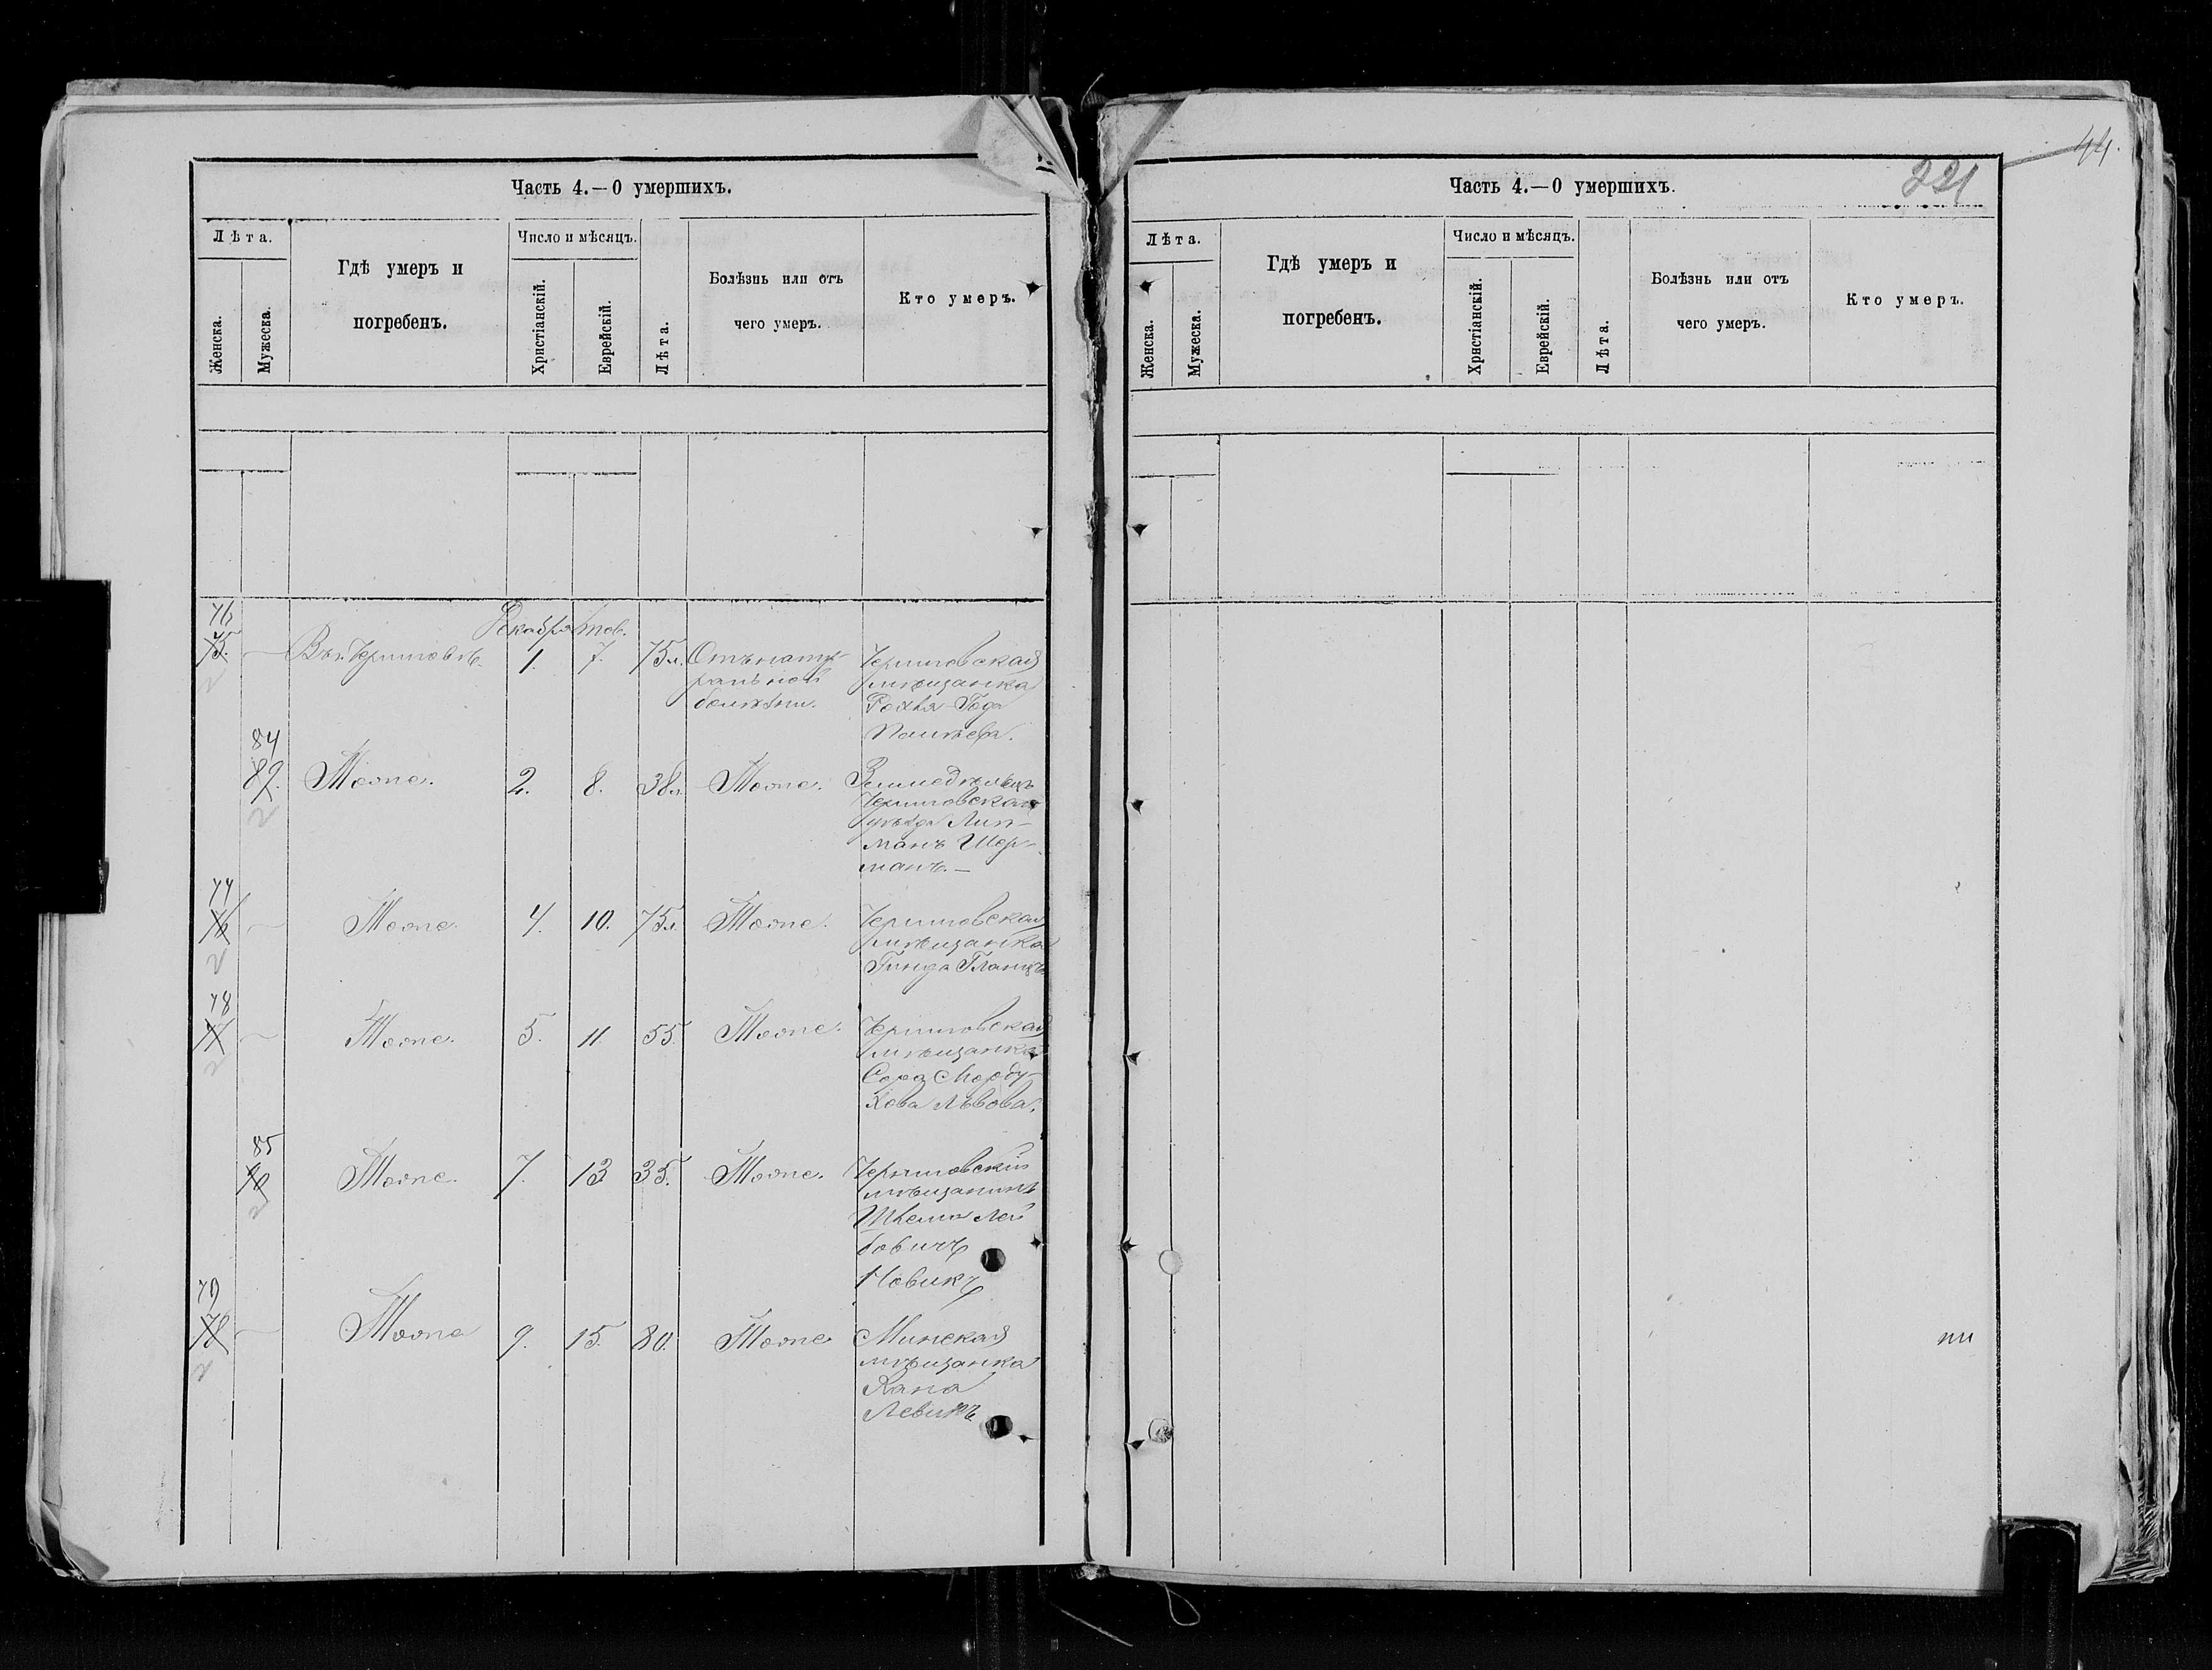 Часть 4.—О умершихъ.
Лѣта.
Женска.
Мужеска.
Гдѣ умеръ и
погребенъ.
Число и мѣсяцъ.
Христіанскій.
Еврейскій.
Лѣта.
Болѣзнь или отъ
чего умеръ.
Кто умеръ.
76
75.
Въ г. Черниговѣ.
Декабря
1.
Тов.
7.
75 л.
Отъ нату-
ральной
болѣзни.
Черниговская
мѣщанка
Рохля-Года
84
89.
Тоже.
2.
8.
38 л.
Тоже.
Земледѣлецъ
Черниговскаго
уѣзда Лип-
манъ Шер-
манъ.—
77
76
Тоже.
4.
10.
75 л.
Тоже.
Черниговская
мѣщанка
Гинда Гланцъ
78
77
Тоже.
5.
11
55.
Тоже.
Черниговская
мѣщанка
Сора Морду-
хова Львова.
85
90
Тоже.
7.
13
35.
Тоже.
Черниговскій
мѣщанинъ
Шлема Лей
бовичъ
Новикъ
79
78
Тоже
9.
15.
80.
Тоже
Минская
мѣщанка
Хана
Левинъ
44.
221
Часть 4.—О умершихъ.
Лѣта.
Женска.
Мужеска.
Гдѣ умеръ и
погребенъ.
Число и мѣсяцъ.
Христіанскій.
Еврейскій.
Лѣта.
Болѣзнь или отъ
чего умеръ.
Кто умеръ.